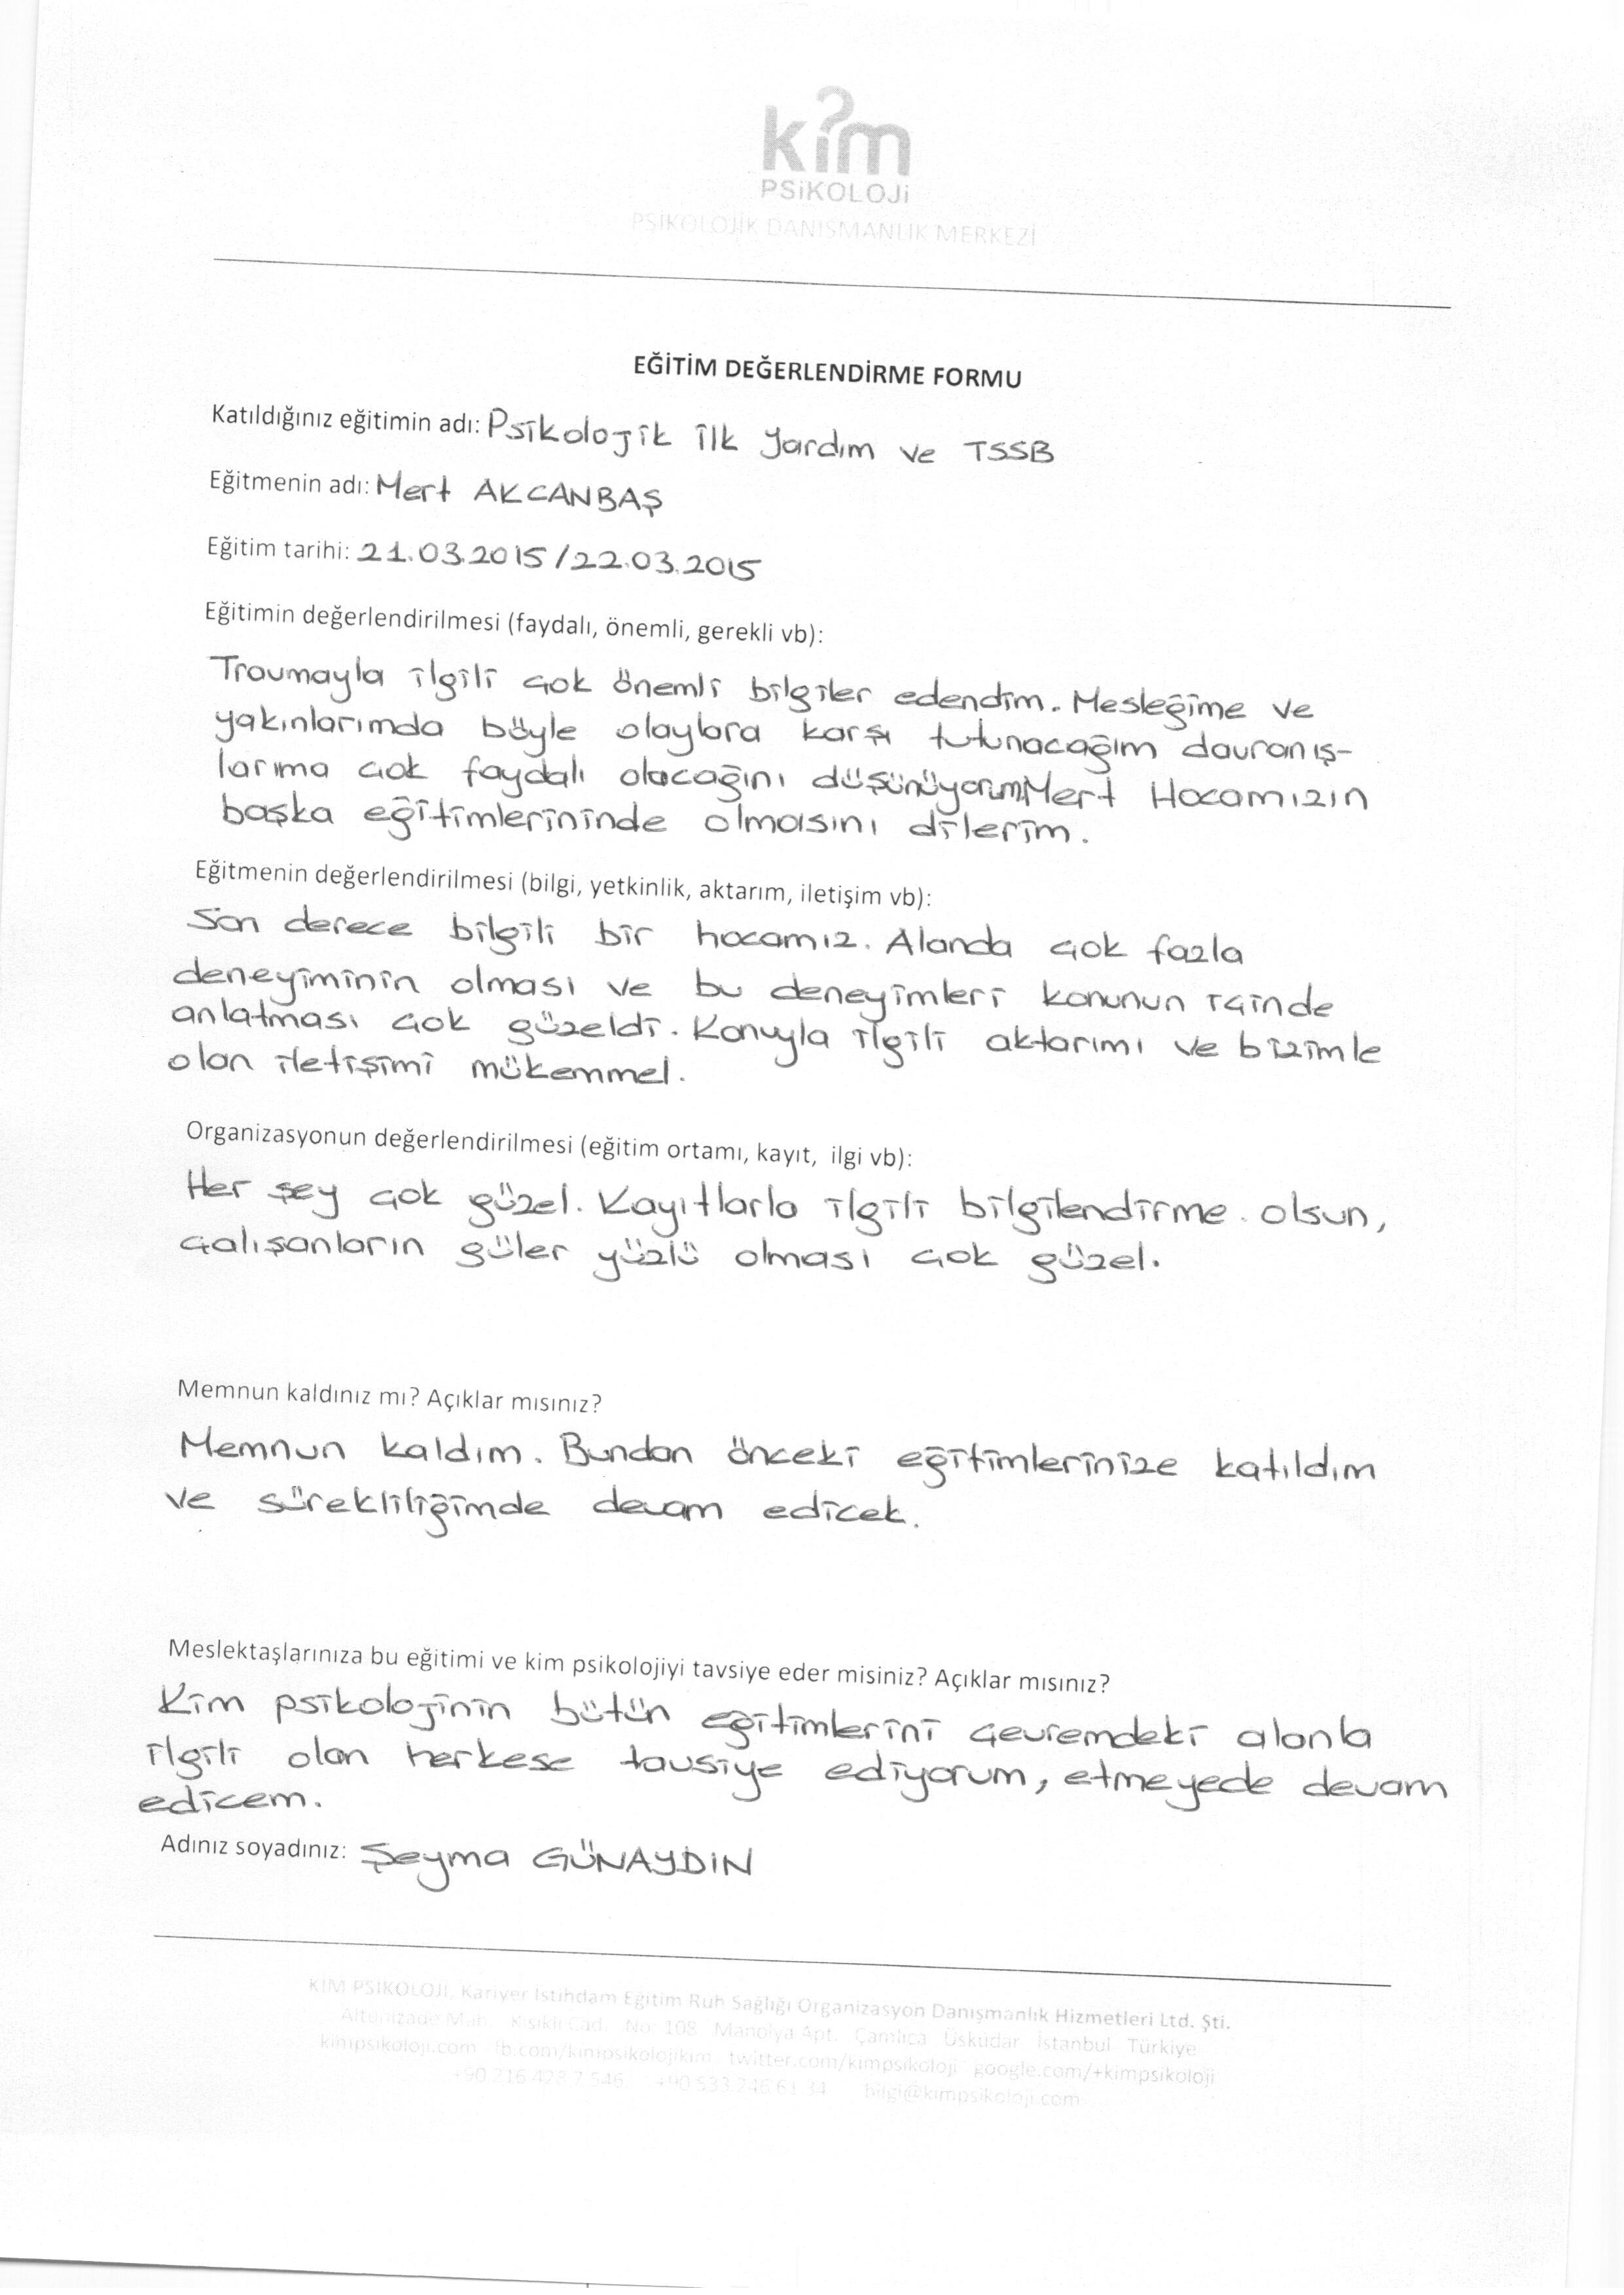 kim
PSİKOLOJİ
PSİKOLOJİK DANIŞMANLIK MERKEZİ
EĞİTİM DEĞERLENDİRME FORMU
Katıldığınız eğitimin adı: Psikolojik ilk yardım ve TSSB
Eğitmenin adı: Mert AKCANBAŞ
Eğitim tarihi: 21.03.2015/22.03.2015
Eğitimin değerlendirilmesi (faydalı, önemli, gerekli vb):
Travmayla ilgili çok önemli bilgiler edendim. Mesleğime ve
yakınlarımda böyle olaylara karşı tutunacağım davranış-
larıma çok faydalı olacağını düşünüyorum.Mert Hocamızın
başka eğitimlerininde olmasını dilerim.
Eğitmenin değerlendirilmesi (bilgi, yetkinlik, aktarım, iletişim vb):
Son derece bilgili bir hocamız. Alanda çok fazla
deneyiminin olması ve bu deneyimleri konunun içinde
anlatması çok güzeldi. Konuyla ilgili aktarımı ve bizimle
olan iletişimi mükemmel.
Organizasyonun değerlendirilmesi (eğitim ortamı, kayıt, ilgi vb):
Her şey çok güzel. Kayıtlarla ilgili bilgilendirme olsun,
çalışanların güler yüzlü olması çok güzel.
Memnun kaldınız mı? Açıklar mısınız?
Memnun kaldım. Bundan önceki eğitimlerinize katıldım
ve sürekliliğimde devam edicek.
Meslektaşlarınıza bu eğitimi ve kim psikolojiyi tavsiye eder misiniz? Açıklar mısınız?
Kim psikolojinin bütün eğitimlerini çevremdeki alanla
ilgili olan herkese tavsiye ediyorum, etmeyede devam
edicem.
Adınız soyadınız: Şeyma GÜNAYDIN
KİM PSİKOLOJİ, Kariyer İstihdam Eğitim Ruh Sağlığı Organizasyon Danışmanlık Hizmetleri Ltd. Şti.
Altunizade Mah. Kısıklı Cad. No: 108 Manolya Apt. Çamlıca Üsküdar İstanbul Türkiye
kimpsikoloji.com fb.com/kimpsikolojikim twitter.com/kimpsikoloji google.com/+kimpsikoloji
+90 216 428 7 546 +90 533 246 61 34 bilgi@kimpsikoloji.com